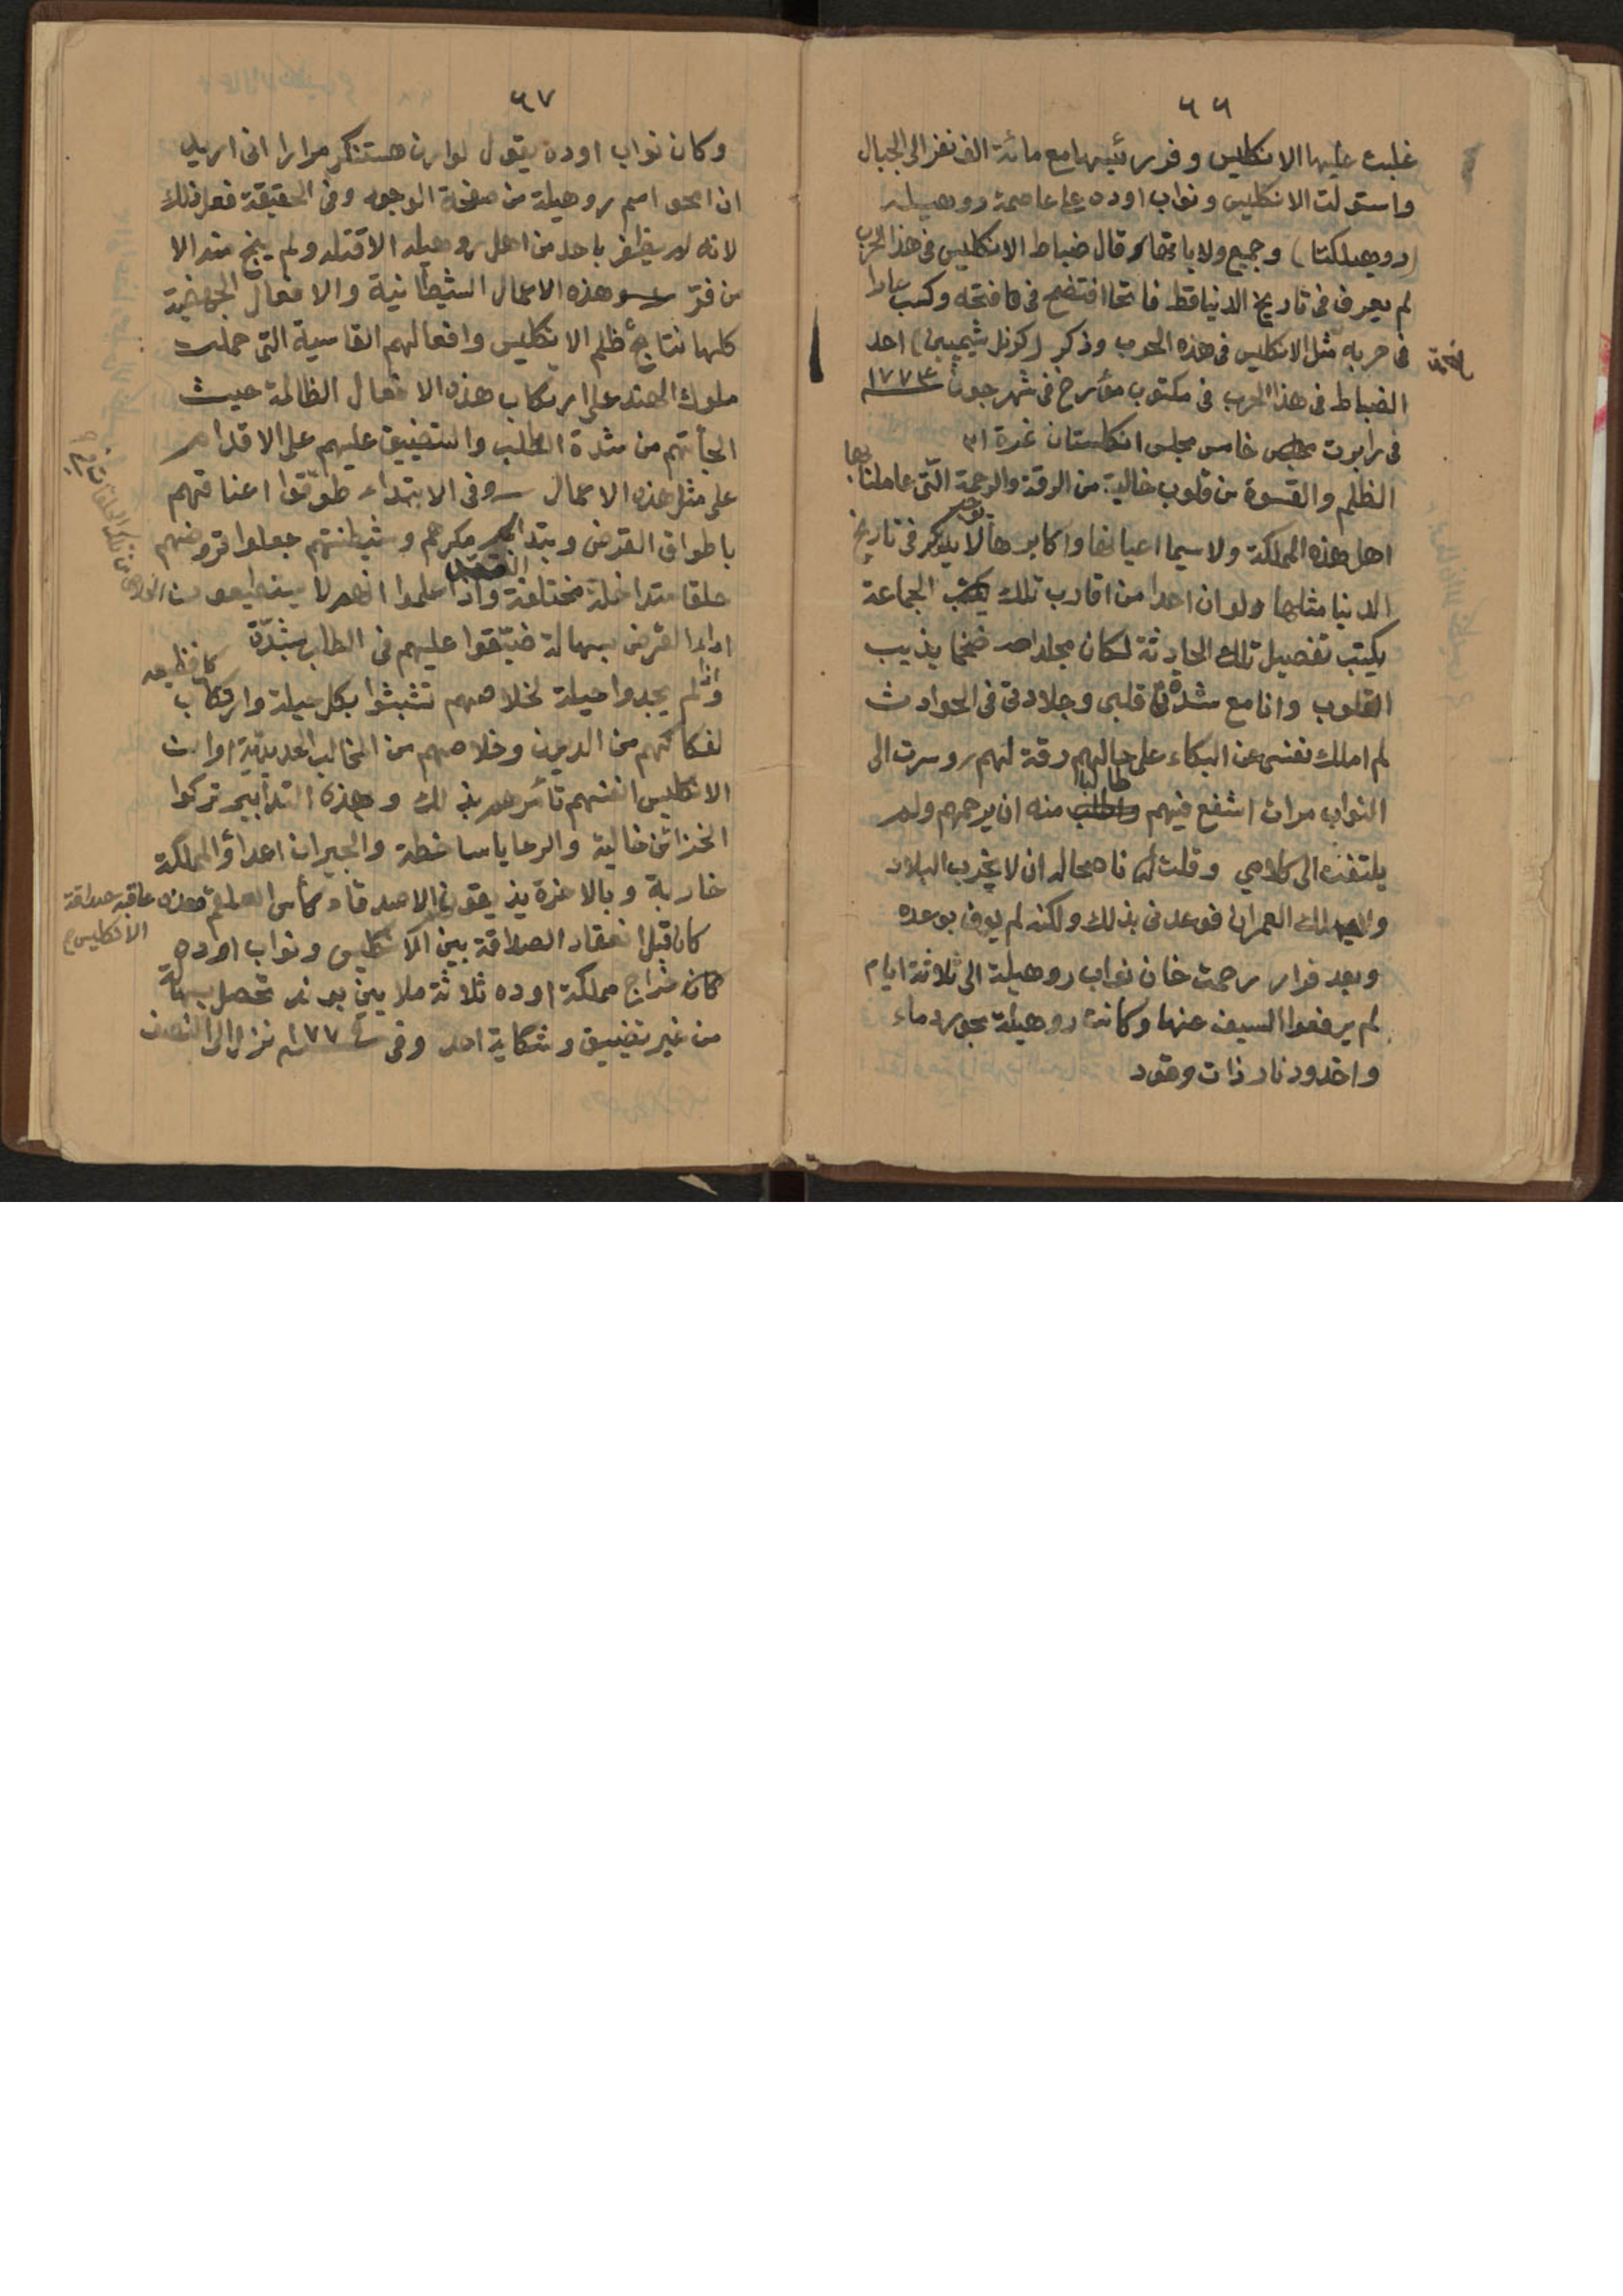 ٦٦
غلبت عليها الانكليس وفر رئيسها مع مائة الف نفر الى الجبال
واستولت الانكليس ونواب اوده على عاصمة روهيله
(روهيلكندا) وجميع ولاياتها وقال ضباط الانكليس فى هذا الحرب
لم يعرف فى تاريخ الدنيا قط فاتحا افتضح فى فتحه وكسب عارا
فى حربه مثل الانكليس فى هذه الحرب وذكر (كرنل شيمبين) احد
الضباط فى هذا الحرب فى مكتوب مؤرخ فى شهر جون ١٧٧٤
فى رابورت خامس مجلس انكلستان غرة ٣١
الظلم والقسوة من قلوب خالية من الرقة والرحمة التى عاملنا بها
اهل هذه المملكة ولا سيما اعيانها واكابرها لا يوجد فى تاريخ
الدنيا مثلها ولو ان احدا من اقارب تلك الجماعة
يكتب تفصيل تلك الحادثة لكان مجلدا ضخما يذيب
القلوب وانا مع شدة قلبى وجلادتى فى الحوادث
لم املك نفسى عن البكاء على حالهم ورقة لهم وسرت الى
النواب مرات اشفع فيهم طالبا منه ان يرحمهم ولم
يلتفت الى كلامي وقلت له ناصحا له ان لا يخرب البلاد
العمران فوعدنى بذلك ولكنه لم يوف بوعده
وبعد فرار رحمت خان نواب روهيلة الى ثلاثة ايام
لم يرفعوا السيف عنها وكانت روهيلة بحور دماء
واخدود نار ذات وقود
٦٧
وكان نواب اوده يقول لوارن هستنكز مرارا انى اريد
ان امحو اسم روهيلة من صفحة الوجود وفى الحقيقة فعل ذلك
لانه لم يظفر باحد من اهل روهيله الا قتله ولم ينج منه الا
من فر وهذه الاعمال الشيطانية والافعال الجهنمية
كلها نتايج ظلم الانكليس وافعالهم القاسية التى حملت
ملوك الهند على ارتكاب هذه الافعال الظالمة حيث
الجأتهم من شدة الطلب والتضييق عليهم على الاقدام
على مثل هذه الاعمال وفى الابتداء طوّقوا اعناقهم
باطواق القرض وبتدابير مكرهم وشيطنتهم جعلوا قروضهم
حلقا متداخلة مختلفة واذا علموا انهم لا يستطيعون
اداء القرض بسهالة ضيّقوا عليهم فى الطلب بشدّة
واذا لم يجدوا حيلة لخلاصهم تشبثوا بكل حيلة وارتكاب كل فظيعه
لفكاكهم من الديون وخلاصهم من المخالب الحديديّة
الانكليس انفسهم تأمرهم بذلك وبهذه التدابير تركوا
الخزائن خالية والرعايا ساخطة والجيران اعداؤ المملكة
خاربة وبالاخرة يذيقون الاصدقاء كأس العلقم وهذه عاقبة صداقة
الانكليس
كان قبل انعقاد الصداقة بين الانكليس ونواب اوده
كان خراج مملكة اوده ثلاثة ملايين بوند تحصل بسهالة
من غير تضييق وشكاية احد وفى ١٧٧٤ نزل الى النصف